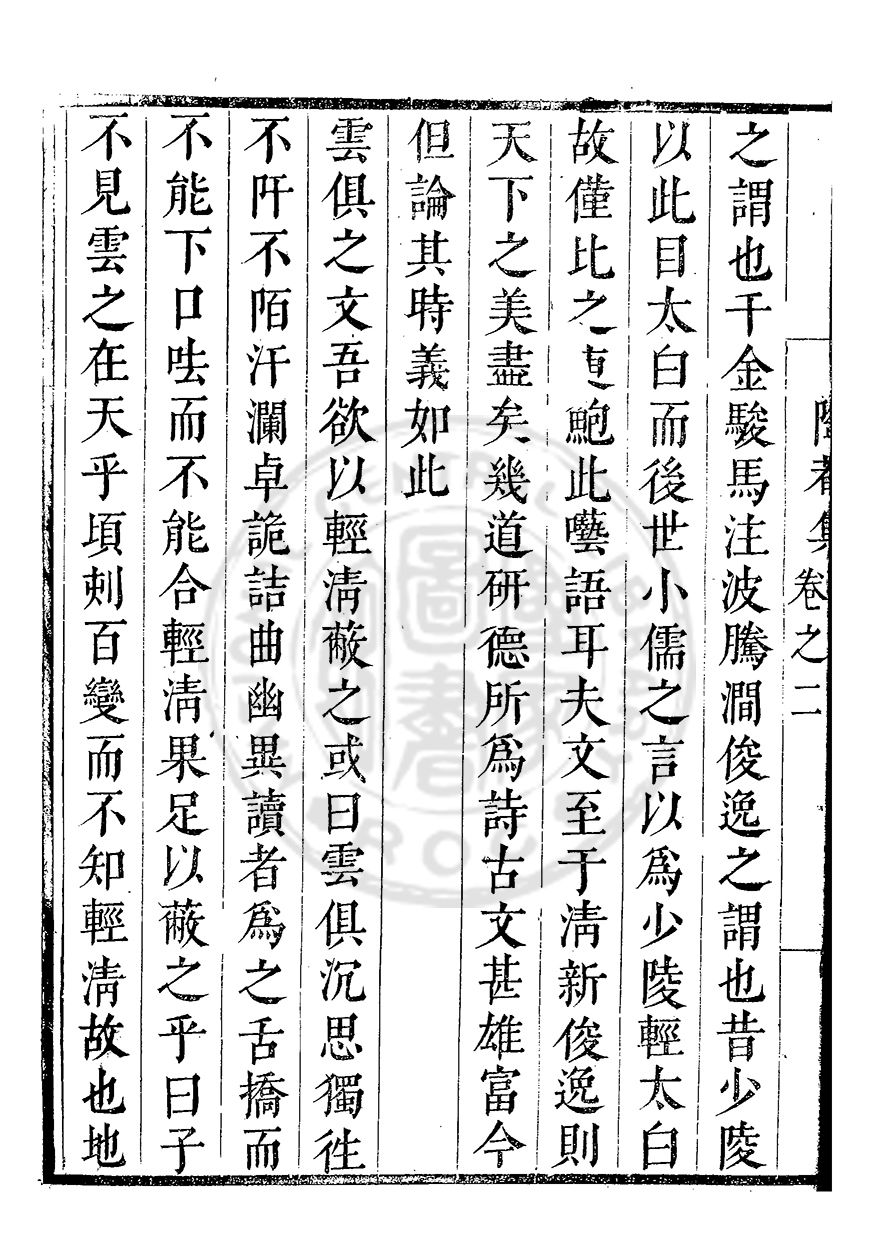 之謂也千金駿馬注波騰澗俊逸之謂也昔少陵
以此目太白而後世小儒之言以為少陵輕太白
故僅比之庾鮑此囈語耳夫文至于清新俊逸則
天下之美盡矣幾道研德所為詩古文甚雄富今
但論其時義如此
雲俱之文吾欲以輕清蔽之或曰雲俱沉思獨徃
不阡不陌汗瀾卓詭詰曲幽異讀者為之舌撟而
不能下口呿而不能合輕清果足以蔽之乎曰子
不見雲之在天乎頃刺百變而不知輕清故也地
集卷之二